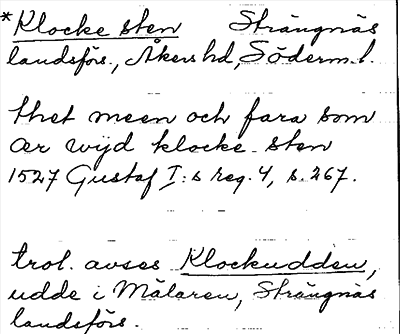 *Klocke sten Strängnäs
landsförs., Åkers hd, Söderm. l.
thet meen och fara som
ær wijd klocke sten
1527 Gustaf I:s reg. 4, s. 267.
trol. avses Klockudden,
udde i Mälaren, Strängnäs
landsförs.